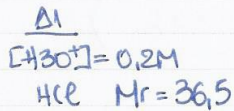 Δ1
[H3O⁺] = 0,2M
HCl Mr = 36,5